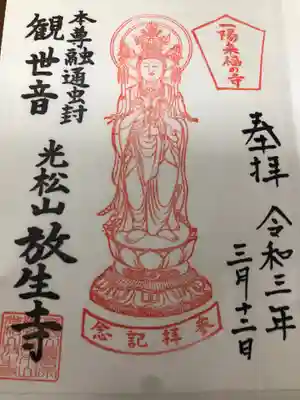 一陽来福の寺
奉拝
令和三年
三月十二日
參拝記念
本尊融通虫封
観世音
光松山放生寺